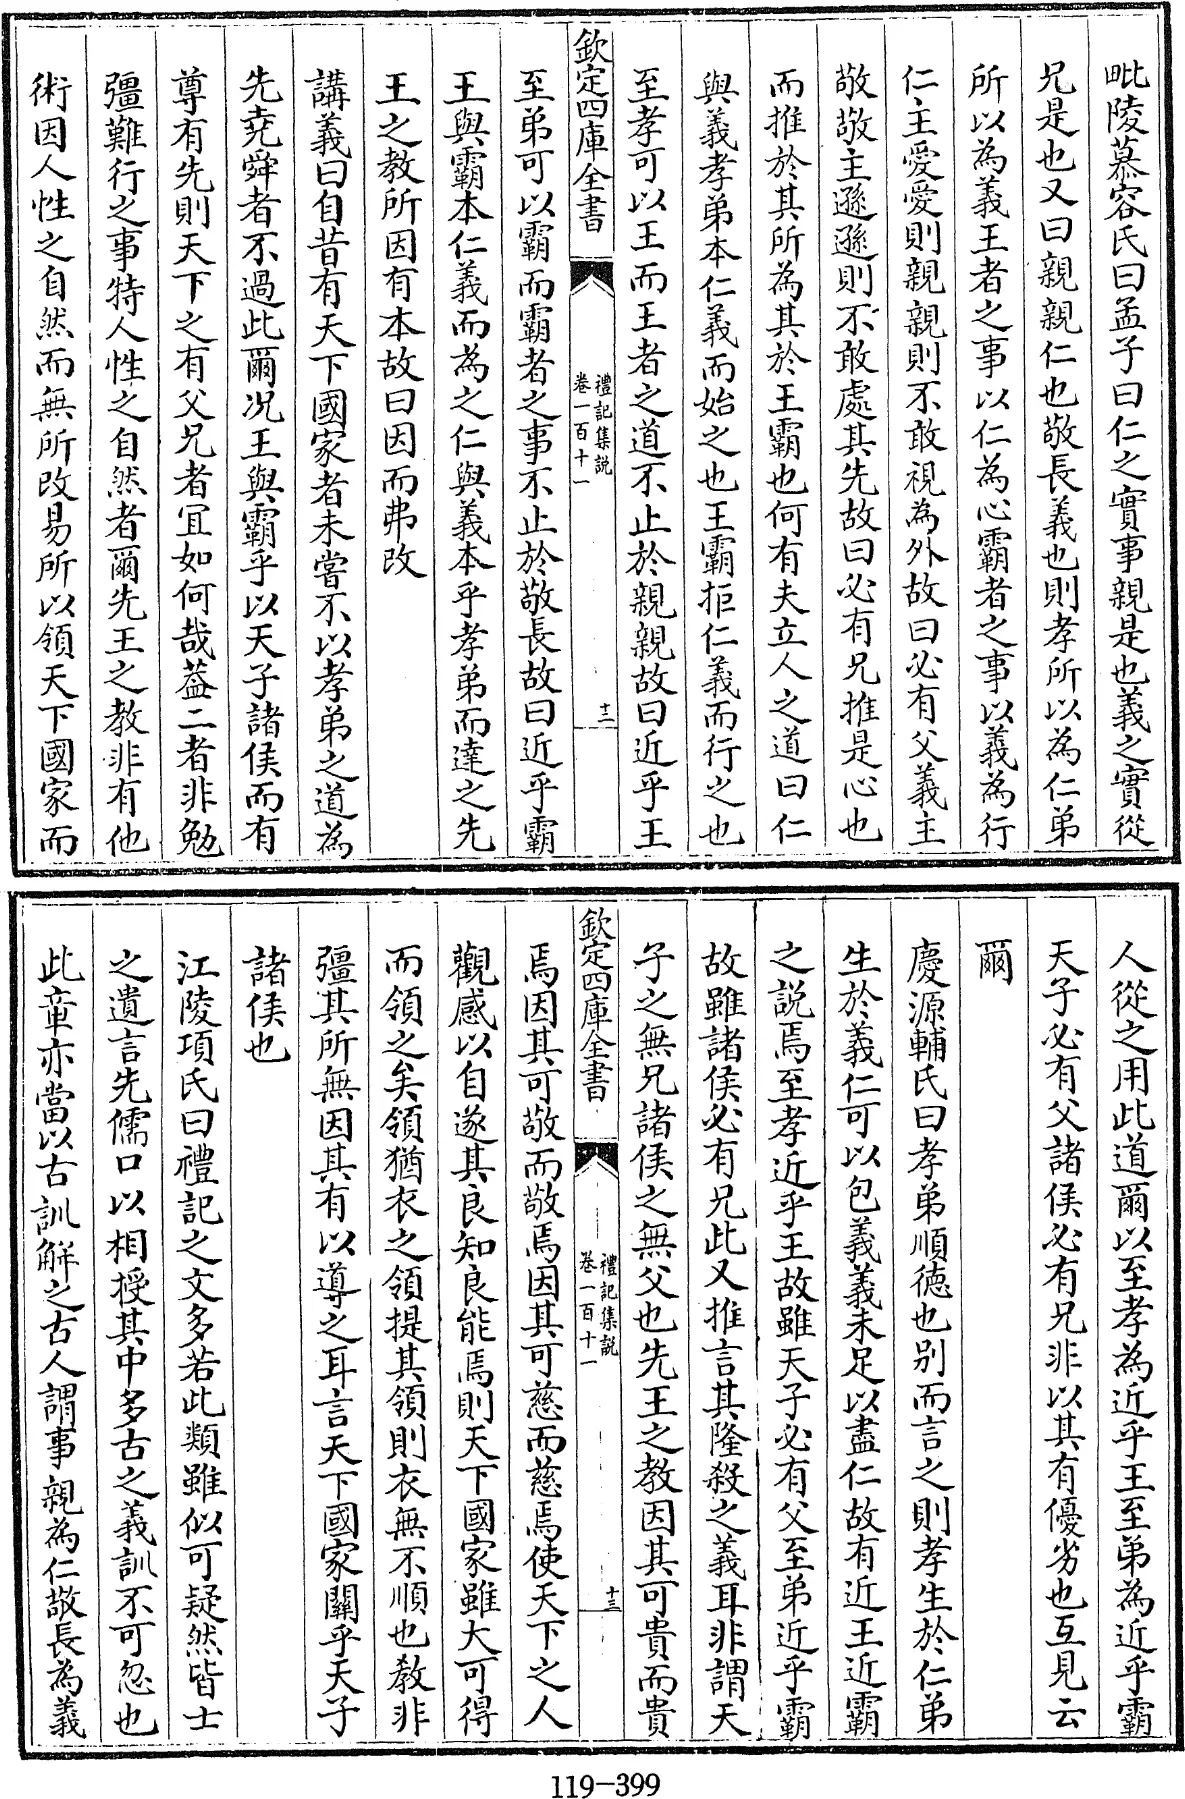 毗陵慕容氏曰孟子曰仁之實事親是也義之實從
兄是也又曰親親仁也敬長義也則孝所以為仁弟
所以為義王者之事以仁為心霸者之事以義為行
仁主愛愛則親親則不敢視為外故曰必有父義主
敬敬主遜遜則不敢處其先故曰必有兄推是心也
而推於其所為其於王霸也何有夫立人之道曰仁
與義孝弟本仁義而始之也王霸拒仁義而行之也
至孝可以王而王者之道不止於親親故曰近乎王
欽定四庫全書
禮記集説
卷一百十一
十二
至弟可以霸而霸者之事不止於敬長故曰近乎霸
王與霸本仁義而為之仁與義本乎孝弟而達之先
王之教所因有本故曰因而弗改
講義曰自昔有天下國家者未嘗不以孝弟之道為
先堯舜者不過此爾况王與霸乎以天子諸侯而有
尊有先則天下之有父兄者宜如何哉葢二者非勉
彊難行之事特人性之自然者爾先王之教非有他
術因人性之自然而無所改易所以領天下國家而
人從之用此道爾以至孝為近乎王至弟為近乎霸
天子必有父諸侯必有兄非以其有優劣也互見云
爾
慶源輔氏曰孝弟順德也别而言之則孝生於仁弟
生於義仁可以包義義未足以盡仁故有近王近霸
之説焉至孝近乎王故雖天子必有父至弟近乎霸
故雖諸侯必有兄此又推言其隆殺之義耳非謂天
子之無兄諸侯之無父也先王之教因其可貴而貴
欽定四庫全書
禮記集説
卷一百十一
十三
焉因其可敬而敬焉因其可慈而慈焉使天下之人
觀感以自遂其良知良能焉則天下國家雖大可得
而領之矣領猶衣之領提其領則衣無不順也教非
彊其所無因其有以導之耳言天下國家關乎天子
諸侯也
江陵項氏曰禮記之文多若此類雖似可疑然皆士
之遺言先儒口以相授其中多古之義訓不可忽也
此章亦當以古訓解之古人謂事親為仁敬長為義
119-399